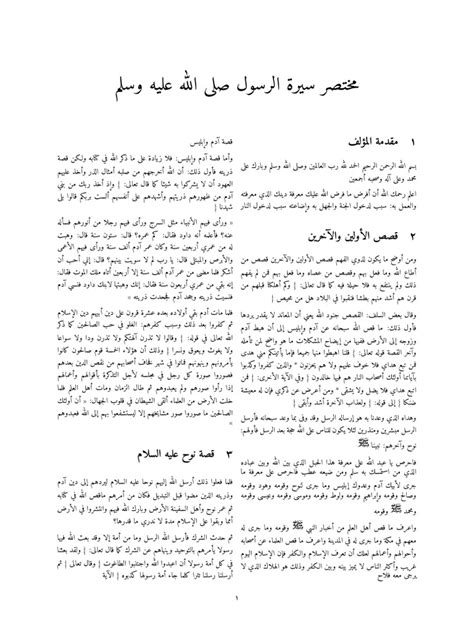 مختصر سيرة الرسول صلى الله عليه وسلم
١ مقدمة المؤلف
بسم الله الرحمن الرحيم الحمد لله رب العالمين وصلى الله وسلم وبارك على
محمد وعلى آله وصحبه أجمعين
اعلم رحمك الله أن أفرض ما فرض الله عليك معرفة دينك الذي معرفته
والعمل به: سبب لدخول الجنة والجهل به وإضاعته سبب لدخول النار
٢ قصص الأولين والآخرين
ومن أوضح ما يكون لذوي الفهم قصص الأولين والآخرين قصص من
أطاع الله وما فعل بهم وقصص من عصاه وما فعل بهم فمن لم يفهم
ذلك ولم ينتفع به فلا حيلة فيه كما قال تعالى: { وكم أهلكنا قبلهم من
قرن هم أشد منهم بطشا فنقبوا في البلاد هل من محيص }
وقال بعض السلف: القصص جنود الله يعني أن المعاند لا يقدر يردها
فأول ذلك: ما قص الله سبحانه عن آدم وإبليس إلى أن هبط آدم
وزوجه إلى الأرض ففيها من إيضاح المشكلات ما هو واضح لمن تأمله
وآخر القصة قوله تعالى: { قلنا اهبطوا منها جميعا فإما يأتينكم مني هدى
فمن تبع هداي فلا خوف عليهم ولا هم يحزنون * والذين كفروا وكذبوا
بآياتنا أولئك أصحاب النار هم فيها خالدون } وفي الآية الأخرى: { فمن
اتبع هداي فلا يضل ولا يشقى * ومن أعرض عن ذكري فإن له معيشة
ضنكا } إلى قوله: { ولعذاب الآخرة أشد وأبقى }
وهداه الذي وعدنا به هو إرساله الرسل وقد وفى بما وعد سبحانه فأرسل
الرسل مبشرين ومنذرين لئلا يكون للناس على الله حجة بعد الرسل فأولهم:
نوح وآخرهم: نبينا ﷺ
فاحرص يا عبد الله على معرفة هذا الحبل الذي بين الله وبين عباده
الذي من استمسك به سلم ومن ضيعه عطب فاحرص على معرفة ما
جرى لأبيك آدم وعدوك إبليس وما جرى لنوح وقومه وهود وقومه
وصالح وقومه وإبراهيم وقومه ولوط وقومه وموسى وقومه وعيسى وقومه
ومحمد ﷺ وقومه
واعرف ما قص أهل العلم من أخبار النبي ﷺ وقومه وما جرى له
معهم في مكة وما جرى له في المدينة واعرف ما قص العلماء عن أصحابه
وأحوالهم وأعمالهم لعلك أن تعرف الإسلام والكفر فإن الإسلام اليوم
غريب وأكثر الناس لا يميز بينه وبين الكفر وذلك هو الهلاك الذي لا
يرجى معه فلاح
قصة آدم وإبليس
وأما قصة آدم وإبليس: فلا زيادة على ما ذكر الله في كتابه ولكن قصة
ذريته فأول ذلك: أن الله أخرجهم من صلبه أمثال الذر وأخذ عليهم
العهود أن لا يشركوا به شيئا كما قال تعالى: { وإذ أخذ ربك من بني
آدم من ظهورهم ذريتهم وأشهدهم على أنفسهم ألست بربكم قالوا بلى
شهدنا }
* ورأى فيهم الأنبياء مثل السرج ورأى فيهم رجلا من أنورهم فسأله
عنه؟ فأعلمه أنه داود فقال: كم عمره؟ قال: ستون سنة قال: وهبت
له من عمري أربعين سنة وكان عمر آدم ألف سنة ورأى فيهم الأعمى
والأبرص والمبتلى قال: يا رب لم لا سويت بينهم؟ قال: إني أحب أن
أشكر فلما مضى من عمر آدم ألف سنة إلا أربعين أتاه ملك الموت فقال:
إنه بقي من عمري أربعون سنة فقال: إنك وهبتها لابنك داود فنسي آدم
فنسيت ذريته وجحد آدم فجحدت ذريته *
فلما مات آدم بقي أولاده بعده عشرة قرون على دين أبيهم دين الإسلام
ثم كفروا بعد ذلك وسبب كفرهم: الغلو في حب الصالحين كما ذكر
الله تعالى في قوله: { وقالوا لا تذرن آلهتكم ولا تذرن ودا ولا سواعا
ولا يغوث ويعوق ونسرا } وذلك أن هؤلاء الخمسة قوم صالحون كانوا
يأمرونهم وينهونهم فماتوا في شهر فخاف أصحابهم من نقص الدين بعدهم
فصوروا صورة كل رجل في مجلسه لأجل التذكرة بأقوالهم وأعمالهم
إذا رأوا صورهم ولم يعبدوهم ثم طال الزمان ومات أهل العلم فلما
خلت الأرض من العلماء ألقى الشيطان في قلوب الجهال: أن أولئك
الصالحين ما صوروا صور مشايخهم إلا ليستشفعوا بهم إلى الله فعبدوهم
٣ قصة نوح عليه السلام
فلما فعلوا ذلك أرسل الله إليهم نوحا عليه السلام ليردهم إلى دين آدم
وذريته الذين مضوا قبل التبديل فكان من أمرهم ماقص الله في كتابه
ثم عمر نوح وأهل السفينة الأرض وبارك الله فيهم وانتشروا في الأرض
أمما وبقوا على الإسلام مدة لا ندري ما قدرها؟
ثم حدث الشرك فأرسل الله الرسل وما من أمة إلا وقد بعث الله فيها
رسولا يأمرهم بالتوحيد وينهاهم عن الشرك كما قال تعالى: { ولقد بعثنا
في كل أمة رسولا أن اعبدوا الله واجتنبوا الطاغوت } وقال تعالى { ثم
أرسلنا رسلنا تترا كلما جاء أمة رسولها كذبوه } الآية
١